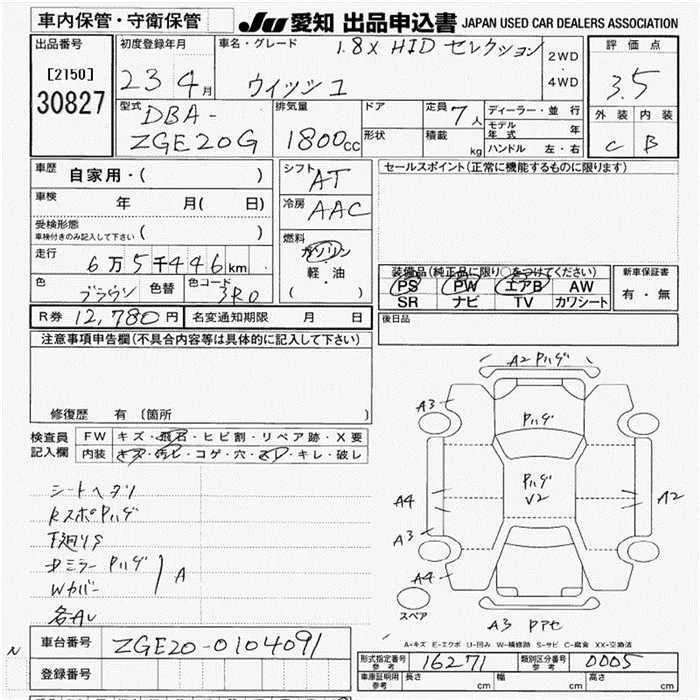 車内保管・守衛保管
JU 愛知 出品申込書 JAPAN USED CAR DEALERS ASSOCIATION
出品番号
[2150]
30827
初度登録年月
23 4月
車名・グレード
1.8X HID セレクション
ウィッシュ
2WD
・
4WD
評価点
3.5
外装 内装
C B
型式
DBA-
ZGE20G
排気量
1800cc
ドア
形状
定員 7人
積載 kg
ディーラー・並行
モデル年式 年
ハンドル 左・右
車歴
自家用・( )
車検 年 月( 日)
受検形態
車検付きのみ記入して下さい ( )
走行
6万5千446km
色 ブラウン 色替 色コード 3R0
シフト AT
冷房 AAC
燃料
ガソリン
軽・油
( )
R券 12,780円 名変通知期限 月 日
セールスポイント(正常に機能するものに限ります)
装備品(純正品に限り○をつけてください)
PS PW エアB AW
SR ナビ TV カワシート
新車保証書
有・無
後日品
注意事項申告欄(不具合内容等は具体的に記入して下さい)
修復歴 有(箇所 )
検査員
記入欄
FW キズ・飛石・ヒビ割・リペア跡・X要
内装 キズ・汚レ・コゲ・穴・スレ・キレ・破レ
シートヘタリ
RスポPハゲ
下廻りS
ドミラーPハゲ
Wカバー
A
各AU
A2 Pハゲ
A3
Pハゲ
Pハゲ
V2
A4
A2
A3
A4
スペア
A3 Pアセ
A-キズ E-エクボ U-凹み W-補修跡 S-サビ C-腐食 XX-交換済
N
車台番号 ZGE20-0104091
登録番号
形式指定番号 参考 16271 類別区分番号 参考 0005
車庫証明用 参考 長さ cm 幅 cm 高さ cm